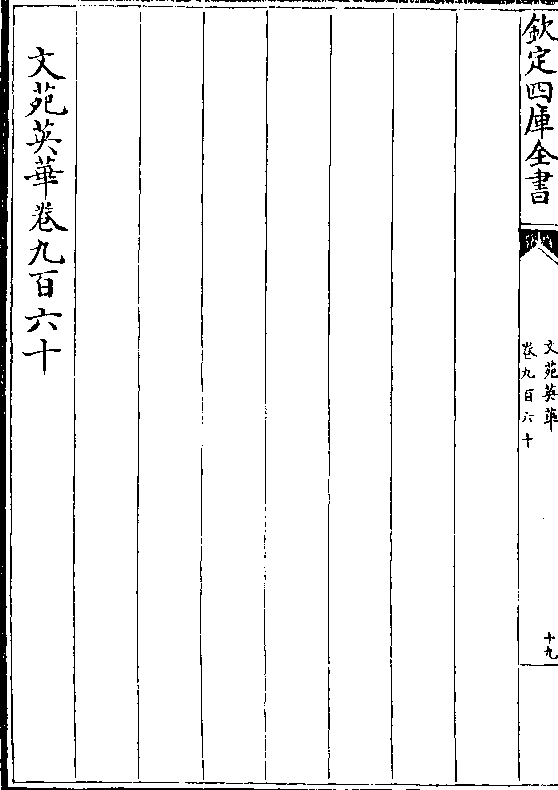 欽定四庫全書
文苑英華
卷九百六十
十九
文苑英華卷九百六十